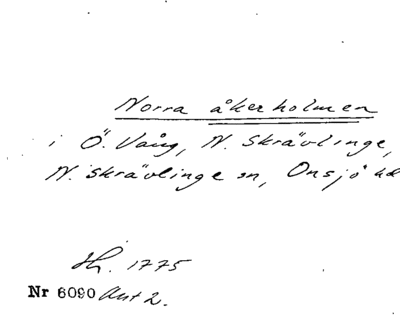 Norra åkerholmen
i Ö. Vång, N. Skrävlinge,
N. Skrävlinge sn, Onsjö hd
Sk. 1775
Nr 6090 Akt 2.